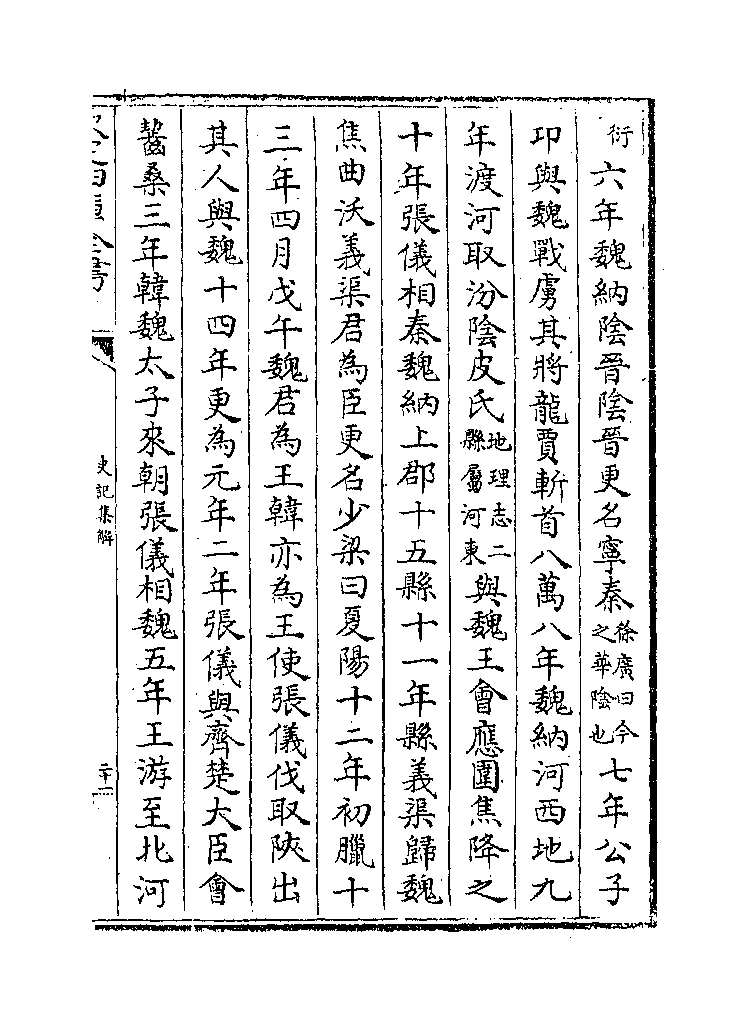 衍六年魏納陰晉陰晉更名寧秦徐廣曰今之華陰也七年公子
卬與魏戰虜其將龍賈斬首八萬八年魏納河西地九
年渡河取汾陰皮氏地理志二縣屬河東與魏王會應圍焦降之
十年張儀相秦魏納上郡十五縣十一年縣義渠歸魏
焦曲沃義渠君為臣更名少梁曰夏陽十二年初臘十
三年四月戊午魏君為王韓亦為王使張儀伐取陜出
其人與魏十四年更為元年二年張儀與齊楚大臣會
齧桑三年韓魏太子來朝張儀相魏五年王游至北河
史記集解
二十一